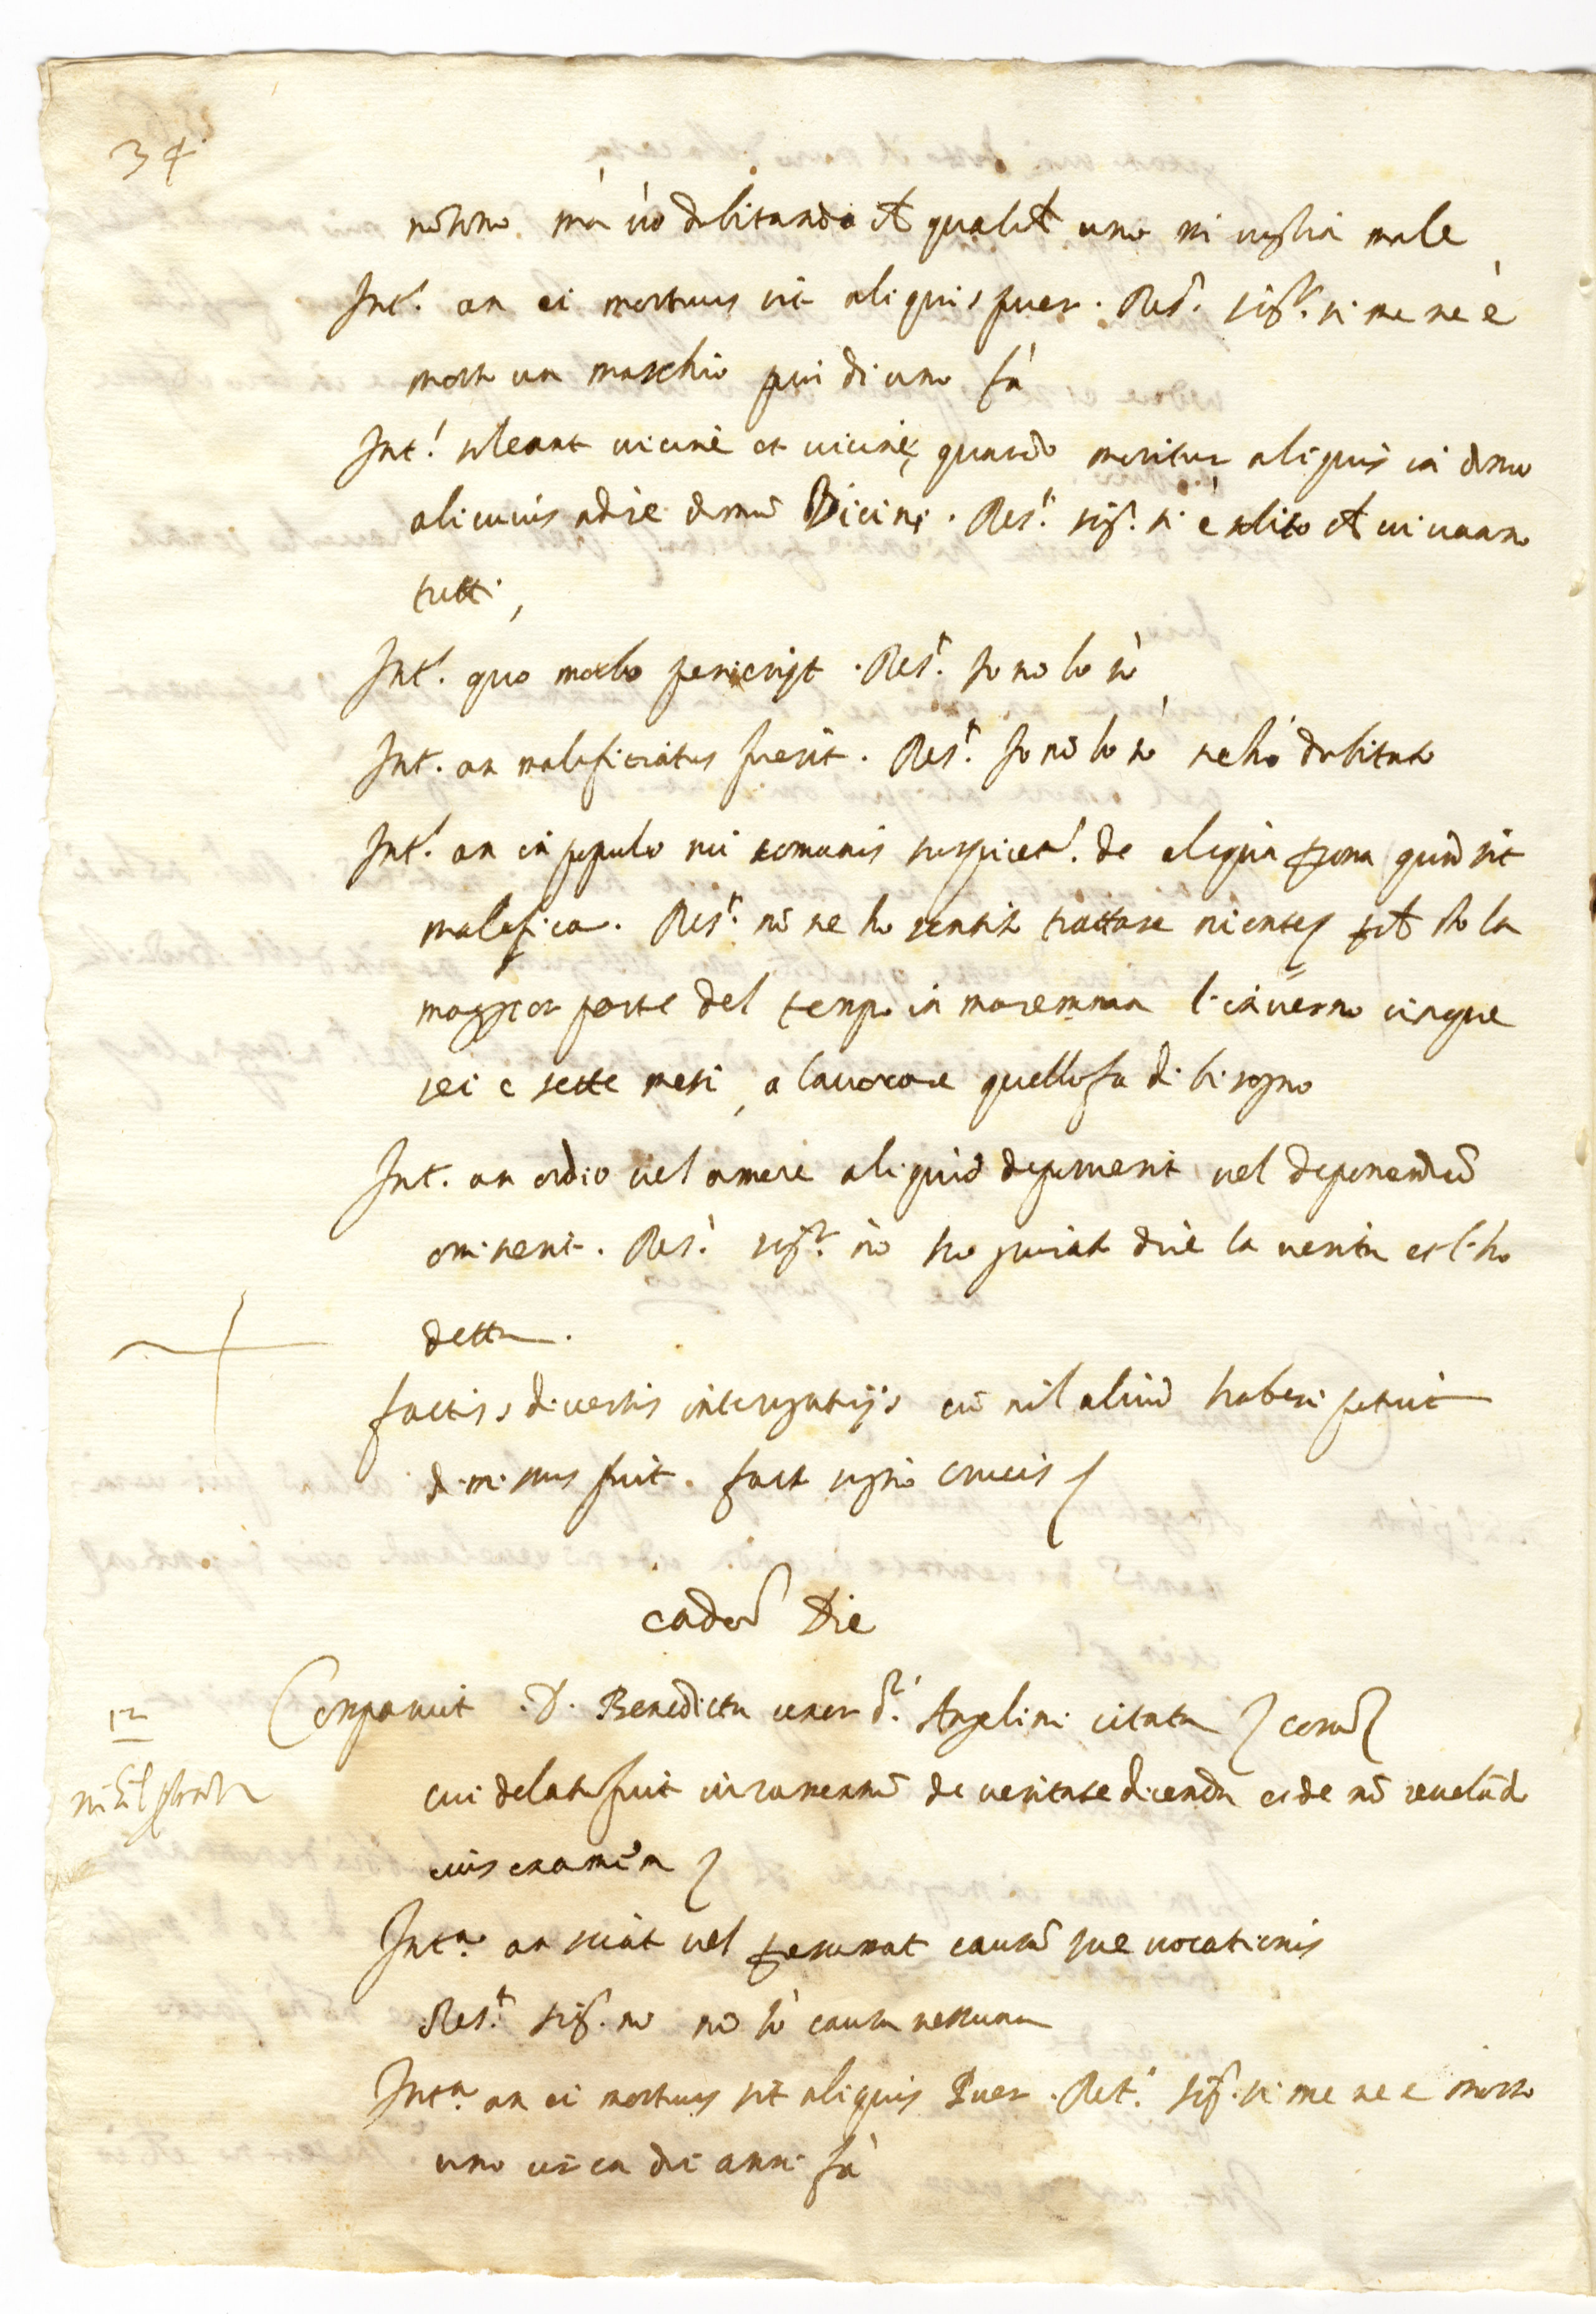 34
ma vo dubitando ch qualch uno mi voglia male
Int.t an ei mortuus sit aliquis puer. Res.t sig.r si me ne è
morto un maschio piu di uno fà
Int.t soleant vicini et vicine, quando moritur aliquis in domo
alicuius adire domū Vicini. Res.t sig.r si è solito ch vi vanno
tutti,
Int.t quo morbo perierijt. Res.t Io nō lo sò
Int.t an maleficiatus fuerit. Res.t Io nō lo sò ne hò dubitato
Int.t an in populo sui comunis suspicet.r de aliqua psona quod sit
malefica. Res.t nō ne ho sentito trattare niente, pch sto la
maggior parte del tempo in maremma l'inverno cinque
sei e sette mesi, a lavorare quello fa di bisogno
Int.t an odio vel amore aliquid deposuerit vel deponendū
omiserit. Res.t sig.r nò ho giurato dire la verita e l'ho
detta.
factis diversis interrogatijs cū nil aliud haberi potuit
dimissus fuit. facto signo crucis
eadem Die
12 Comparuit D. Benedicta uxor d.i Angelini citata coram
nihil probat cui delato fuit iuramento de veritate dicenda et de nō reveland
eius examina
Int.a an sciat vel presumat causā sue vocationis
Res.t sig.r nò nō sò causa nessuna
Int.a an ei mortuus sit aliquis Puer. Res.t sig.r si me ne e morto
uno circa di anni fà